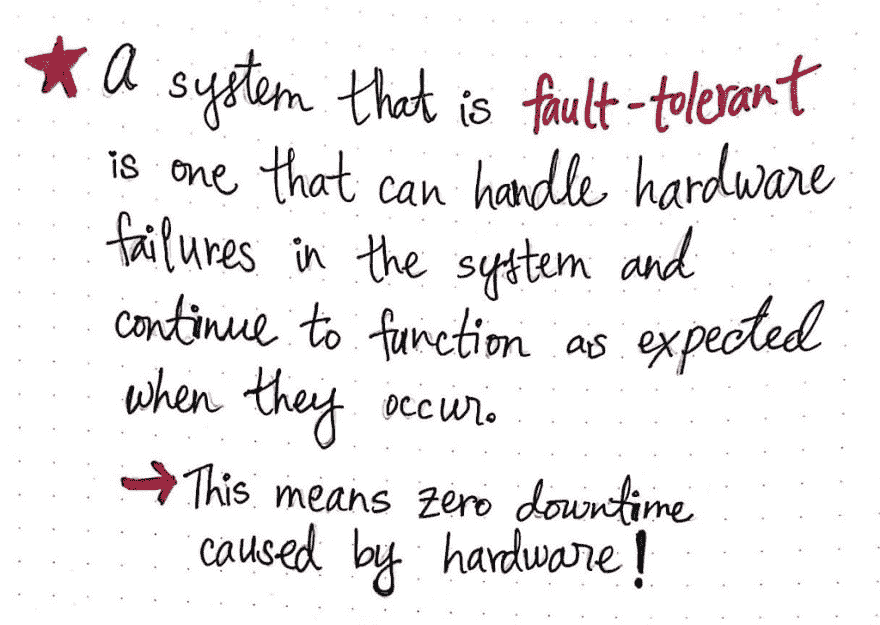 A system that is fault-tolerant
is one that can handle hardware
failures in the system and
continue to function as expected
when they occur.
→ This means zero downtime
caused by hardware!